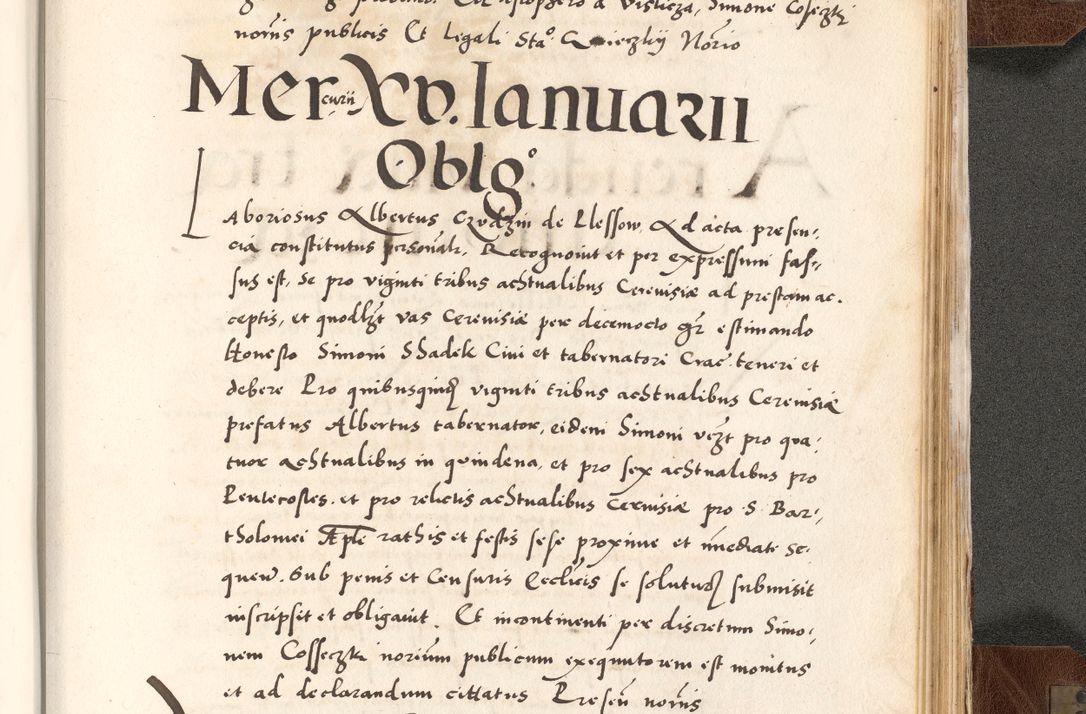 Cristophero a Vislicza, Simone Cosseczki
noriis publicis Et legali Sta° Notrio
Mercurii XV. Ianuarii
Oblg°
Laboriosus Albertus Crudzin de Llessow, Ad acta presen-
cia constitutus personalr, Recognouit et per expressum fas-
sus est, se pro viginti tribus achtualibus Cereuisiæ ad prestam ac-
ceptis, et quodlzt vas Cereuisiæ per decemocto gr estimando
Honesto Simoni Shadek Ciui et tabernatori Crac: teneri et
debere Pro quibusquidem viginti tribus achtualibus Cereuisiæ
prefatus Albertus tabernator, eidem Simoni vczt pro qua-
tuor achtualibus in quindena, et pro sex achtualibus pro
Pentecostes, et pro relictis achtualibus Cereuisiæ pro S Bar-
tholomei Aple rathis et festis sese proxime et imediate se-
quen. Sub penis et Censuris Ecclicis se soluturum submisit
inscripsit et obligauit. Et incontinenti per discretum Simo-
nem Cosseczki norium publicum exequutorem est monitus
et ad declarandum cittatus Presen noriis